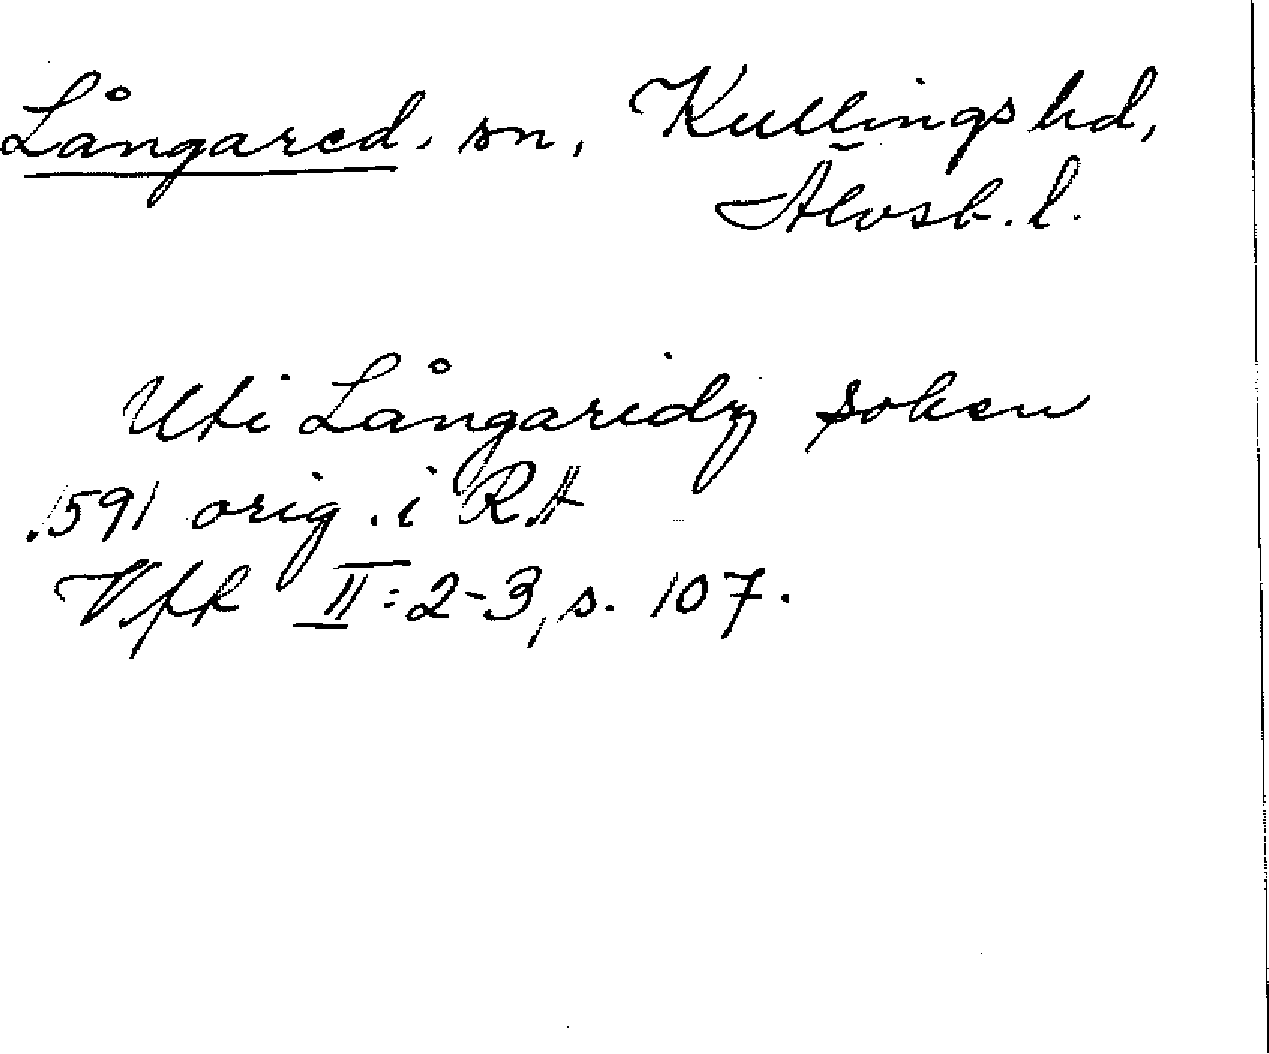 Långared, sn, Kullings hd,
Älvsb. l.
Uti Långaridz soken
1591 orig. i RA
VfR II:2-3, s. 107.